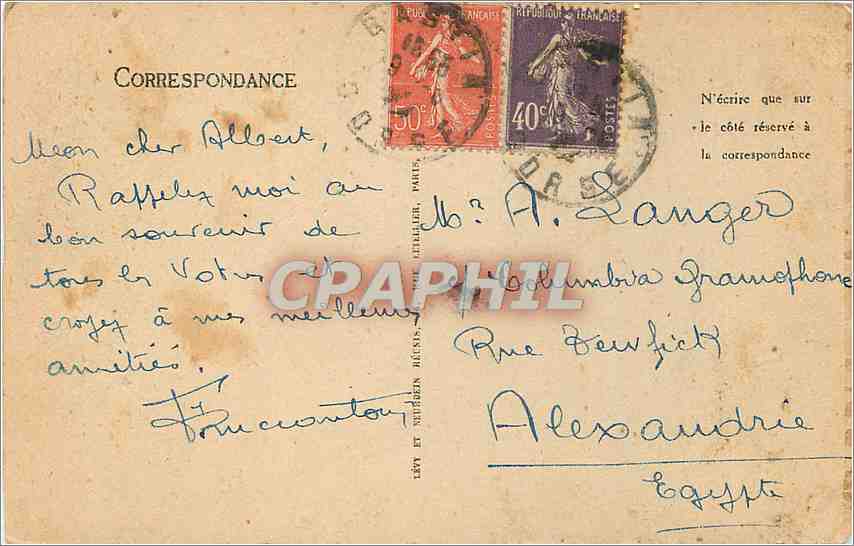 RÉPUBLIQUE FRANÇAISE
50c
POSTES
RÉPUBLIQUE FRANÇAISE
40c
POSTES
CORSE
CORRESPONDANCE
N'écrire que sur
le côté réservé à
la correspondance
Mon cher Albert,
Rappelez moi au
bon souvenir de
tous les Votres et
croyez à mes meilleures
amitiés.
LÉVY ET NEURDEIN RÉUNIS, RUE LETELLIER, PARIS
Mr A. Langer
Columbia Gramophone
Rue Tewfick
Alexandrie
Egypte
CPAPHIL